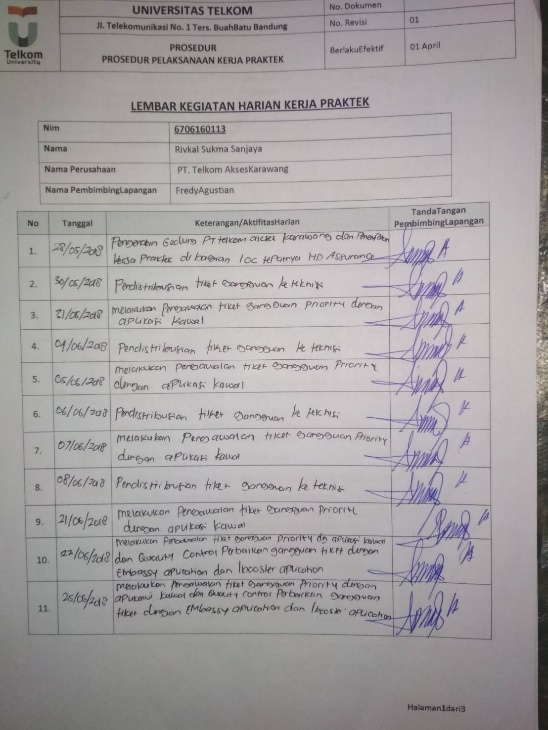 Telkom
University
UNIVERSITAS TELKOM
Jl. Telekomunikasi No. 1 Ters. BuahBatu Bandung
PROSEDUR
PROSEDUR PELAKSANAAN KERJA PRAKTEK
No. Dokumen
No. Revisi 01
BerlakuEfektif 01 April
LEMBAR KEGIATAN HARIAN KERJA PRAKTEK
Nim 6706160113
Nama Rivkal Sukma Sanjaya
Nama Perusahaan PT. Telkom AksesKarawang
Nama PembimbingLapangan FredyAgustian
No Tanggal Keterangan/AktifitasHarian TandaTangan PembimbingLapangan
1. 28/05/2018 Pengenalan Gedung PT telkom akses karawang dan
kerja Praktek di bagian IOC tepatnya HD Assurance
2. 30/05/2018 Pendistribusian tiket gangguan ke teknisi
3. 31/05/2018 melakukan Pengawalan tiket gangguan Priority dengan
aplikasi kawal
4. 04/06/2018 Pendistribusian tiket gangguan ke teknisi
5. 05/06/2018 melakukan Pengawalan tiket gangguan Priority
dengan aplikasi kawal
6. 06/06/2018 Pendistribusian tiket gangguan ke teknisi
7. 07/06/2018 melakukan Pengawalan tiket gangguan Priority
dengan aplikasi kawal
8. 08/06/2018 Pendistribusian tiket gangguan ke teknisi
9. 21/06/2018 melakukan Pengawalan tiket gangguan Priority
dengan aplikasi kawal
10. 22/06/2018 melakukan Pengawalan tiket gangguan Priority dg aplikasi kawal
dan Quality Control Perbaikan gangguan tiket dengan
Embassy aplication dan Ibooster aplication
11. 25/06/2018 melakukan Pengawalan tiket gangguan Priority dengan
aplikasi kawal dan Quality control Perbaikan gangguan
tiket dengan Embassy aplication dan Ibooster aplication
Halaman1dari3